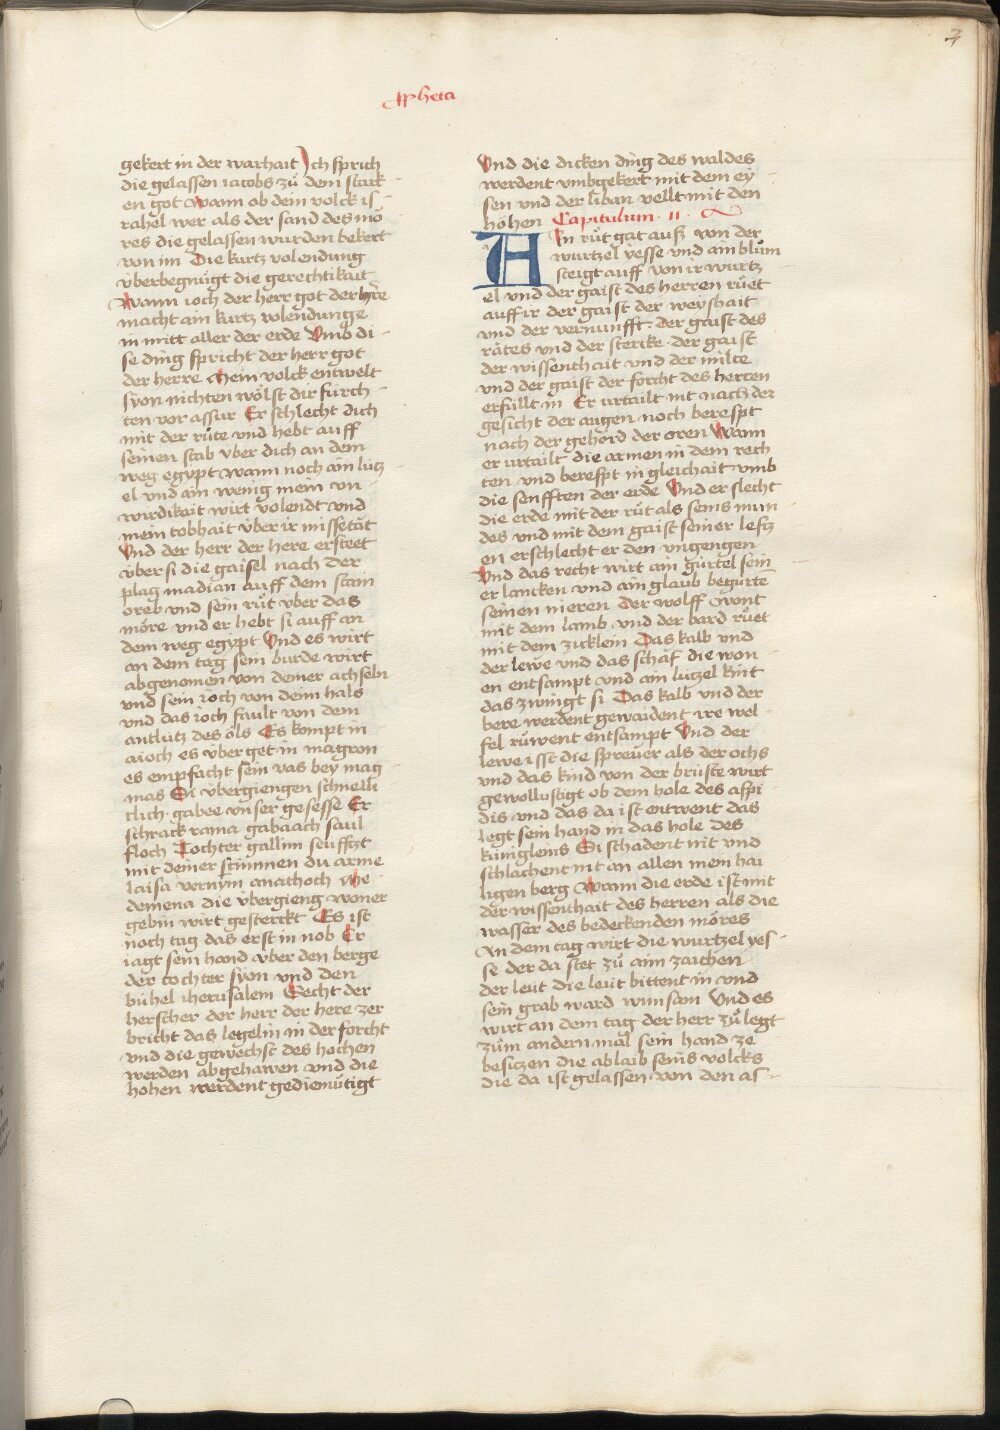 3
ꝓheta
gekert in der warhait Ich sprich
die gelassen iacobs zů dem starck
en got Wann ob dein volck is-
rahel wer als der sand des mö
res die gelassen wurden bekert
von im Die kurtz volendung
überbegnůgt die gerechtikait
Wann ioch der herr got der here
macht ain kurtz volendunge
in mitt aller der erde Vmb di-
se ding spricht der herr got
der herre Mein volck entwelt
syon nichten wölst dir fürch
ten vor assur Er schlecht dich
mit der růte vnd hebt auff
seinen stab über dich an dem
weg egypt wann noch ain lütz
el vnd ain wenig mein vn
wirdikait wirt volendt vnd
mein tobhait über ir missetät
Vnd der herr der here ersteet
über si die gaisel nach der
plag madian auff dem stain
oreb vnd sein růt über das
möre vnd er hebt si auff an
dem weg egypt Vnd es wirt
an dem tag sein burde wirt
abgenomen von deiner achseln
vnd sein ioch von deim hals
vnd das ioch fault von dem
antlütz des öls Es kompt in
aioch es überget in magron
es empfacht sein vas bey mag
mas Si übergiengen schnelli
clich gabee vnser gesesse Er
schrack rama gabaach saul
floch Tochter gallim seufftzt
mit deiner stimmen du arme
laisa vernym anathoch Me-
demena die übergieng woner
gebin wirt gesterckt Es ist
noch tag das erst in nob Er
iagt sein hand über den berge
der tochter syon vnd den
bühel iherusalem Secht der
herscher der herr der here zer
bricht das legelin in der forcht
vnd die gewechst des hochen
werden abgehawen vnd die
hohen werdent gediemütigt
Vnd die dicken ding des waldes
werdent vmbgekert mit dem ey-
sen vnd der liban vellt mit den
höhen Capitulum · 11 ·
Ain růt gat ausz von der
wurtzel yesse vnd ain blům
steigt auff von ir wurtz
el vnd der gaist des herren růet
auff ir der gaist der weyshait
vnd der vernunfft der gaist des
rätes vnd der sterike der gaist
der wissenthait vnd der milte
vnd der gaist der forcht des herren
erfüllt in Er urtailt nit nach der
gesicht der augen noch berefpt
nach der gehörd der oren Wann
er urtailt die armen in dem rech
ten vnd berefpt in gleichait vmb
die senfften der erde Vnd er slecht
die erde mit der růt als seins mun
des vnd mit dem gaist seiner leftz
en erschlecht er den vngengen
Vnd das recht wirt ain gürtel sein
er lancken vnd ain glaub begürte
seinen nieren Der wolff wont
mit dem lamb vnd der bard růet
mit dem zicklein Das kalb vnd
der lewe vnd das schäf die won-
en entsampt vnd ain lützel kint
das zwingt si Das kalb vnd der
bere werdent gewaident ire wel-
fel růwent entsampt Vnd der
lewe isst die spreuer als der ochs
vnd das kind von der brüste wirt
gewollustigt ob dem hole des aspi-
dis vnd das da ist entwent das
legt sein hand in das hole des
künigleins Si schadent nit vnd
schlachent nit an allen mein hai
ligen berg Wann die erde ist mit
der wissenthait des herren als die
wasser des bedeckenden möres
An dem tag wirt die wurtzel yes-
se der da stet zů aim zaichen
der leut die leut bittent in vnd
sein grab ward wunsam Vnd es
wirt an dem tag der herr zůlegt
zům andern mal sein hand ze
besitzen die ablaib seins volcks
die da ist gelassen von den as-